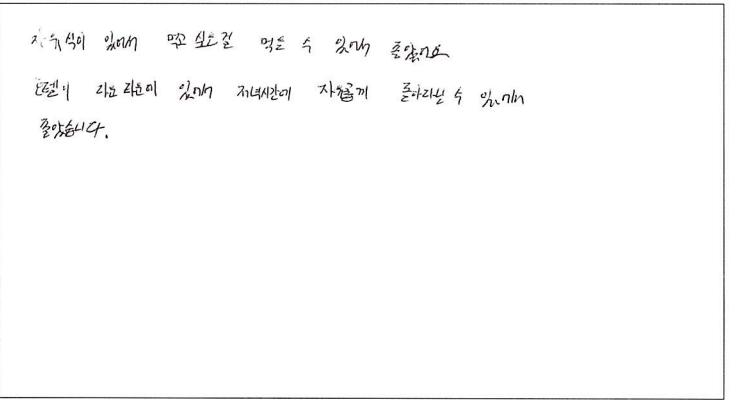 자유식이 있어서 먹고 싶은걸 먹을 수 있어서 좋았어요
호텔이 있어서 저녁시간에 자유롭게 돌아다닐 수 있어서
좋았습니다.